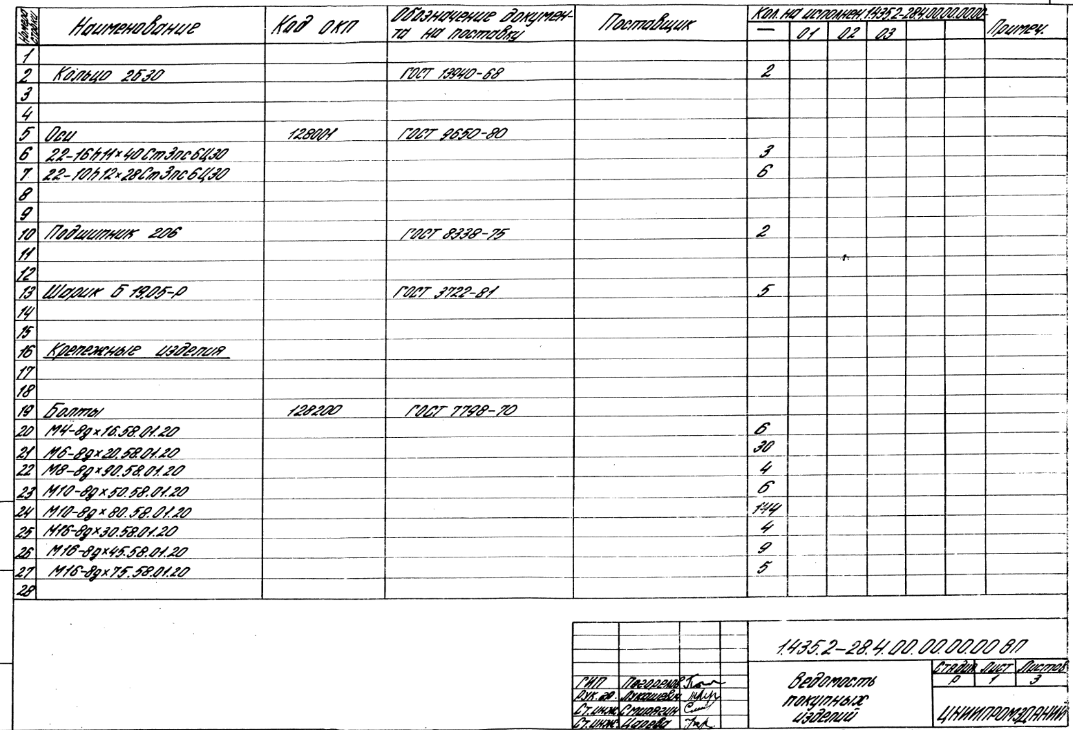 Номер строки Наименование Код ОКП Обозначение документа на поставку Поставщик Кол. на исполнен. 1.435.2-28.4.00.00.00.00- Примеч.
— 01 02 03
1
2 Кольцо 2Б30 ГОСТ 13940-68 2
3
4
5 Оси 128001 ГОСТ 9650-80
6 22-16h11×40Ст3пс6Ц30 3
7 22-10h12×28Ст3пс6Ц30 6
8
9
10 Подшипник 206 ГОСТ 8338-75 2
11
12
13 Шарик Б 19,05-Р ГОСТ 3722-81 5
14
15
16 Крепежные изделия
17
18
19 Болты 128200 ГОСТ 7798-70
20 М4-8g×16.58.01.20 6
21 М6-8g×20.58.01.20 30
22 М8-8g×90.58.01.20 4
23 М10-8g×50.58.01.20 6
24 М10-8g×80.58.01.20 144
25 М16-8g×30.58.01.20 4
26 М16-8g×45.58.01.20 9
27 М16-8g×75.58.01.20 5
28
1.435.2-28.4.00.00.00.00 ВП
Ведомость покупных изделий
Стадия Лист Листов
Р 1 3
ЦНИИПРОМЗДАНИЙ
ГИП
Рук. гр.
Ст. инж.
Ст. инж.